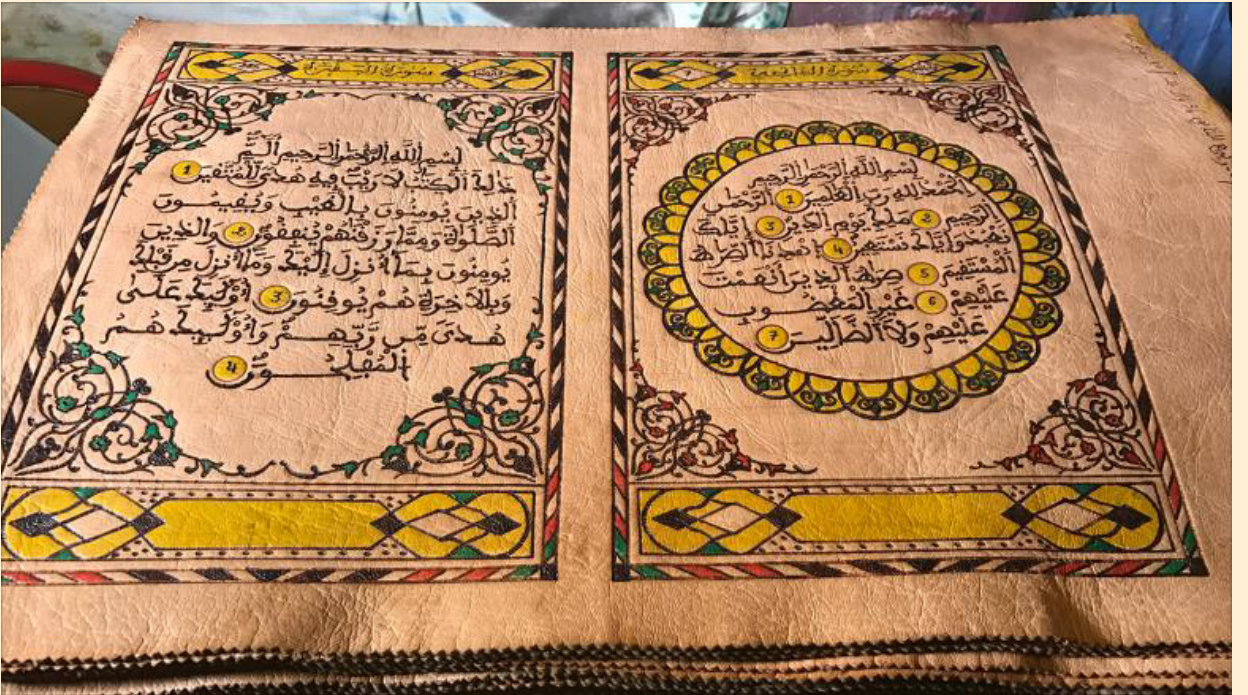 سورة الفاتحة 7
بِسْمِ اللَّهِ الرَّحْمَنِ الرَّحِيمِ
الْحَمْدُ لِلهِ رَبِّ الْعَلَمِينَ 1 الرَّحْمَنِ
الرَّحِيمِ 2 مَلِكِ يَوْمِ الدِّينِ 3 إِيَّاكَ
نَعْبُدُ وَإِيَّاكَ نَسْتَعِينُ 4 اهْدِنَا الصِّرَطَ
الْمُسْتَقِيمَ 5 صِرَطَ الذِينَ أَنْعَمْتَ
عَلَيْهِمْ 6 غَيْرِ الْمَغْضُوبِ
عَلَيْهِمْ وَلَا الضَّالِّينَ 7
سورة البقرة
بِسْمِ اللَّهِ الرَّحْمَنِ الرَّحِيمِ الم
ذَلِكَ الْكِتَبُ لَا رَيْبَ فِيهِ هُدًى لِلْمُتَّقِينَ 1
الذِينَ يُومِنُونَ بِالْغَيْبِ وَيُقِيمُونَ
الصَّلَوةَ وَمِمَّا رَزَقْنَهُمْ يُنفِقُونَ 2 وَالذِينَ
يُومِنُونَ بِمَا أُنزِلَ إِلَيْكَ وَمَا أُنزِلَ مِن قَبْلِكَ
وَبِالَاخِرَةِ هُمْ يُوقِنُونَ 3 أُوْلَيِكَ عَلَى
هُدًى مِّن رَّبِّهِمْ وَأُوْلَيِكَ هُمُ
الْمُفْلِحُونَ 4